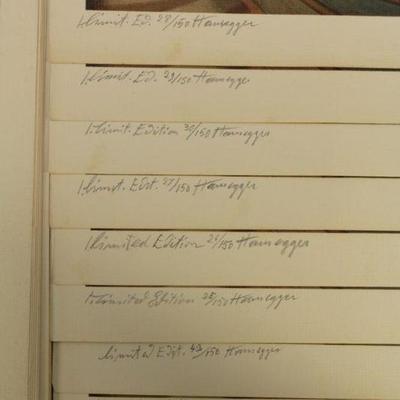 1. Limit. ED. 28/150 Hausegger
1. Limit. Ed. 29/150 Hausegger
1. Limit. Edition 30/150 Hausegger
1. Limit. Edit. 27/150 Hausegger
1. Limited Edition 26/150 Hausegger
1. Limited Edition 25/150 Hausegger
Limited Edit. 49/150 Hausegger